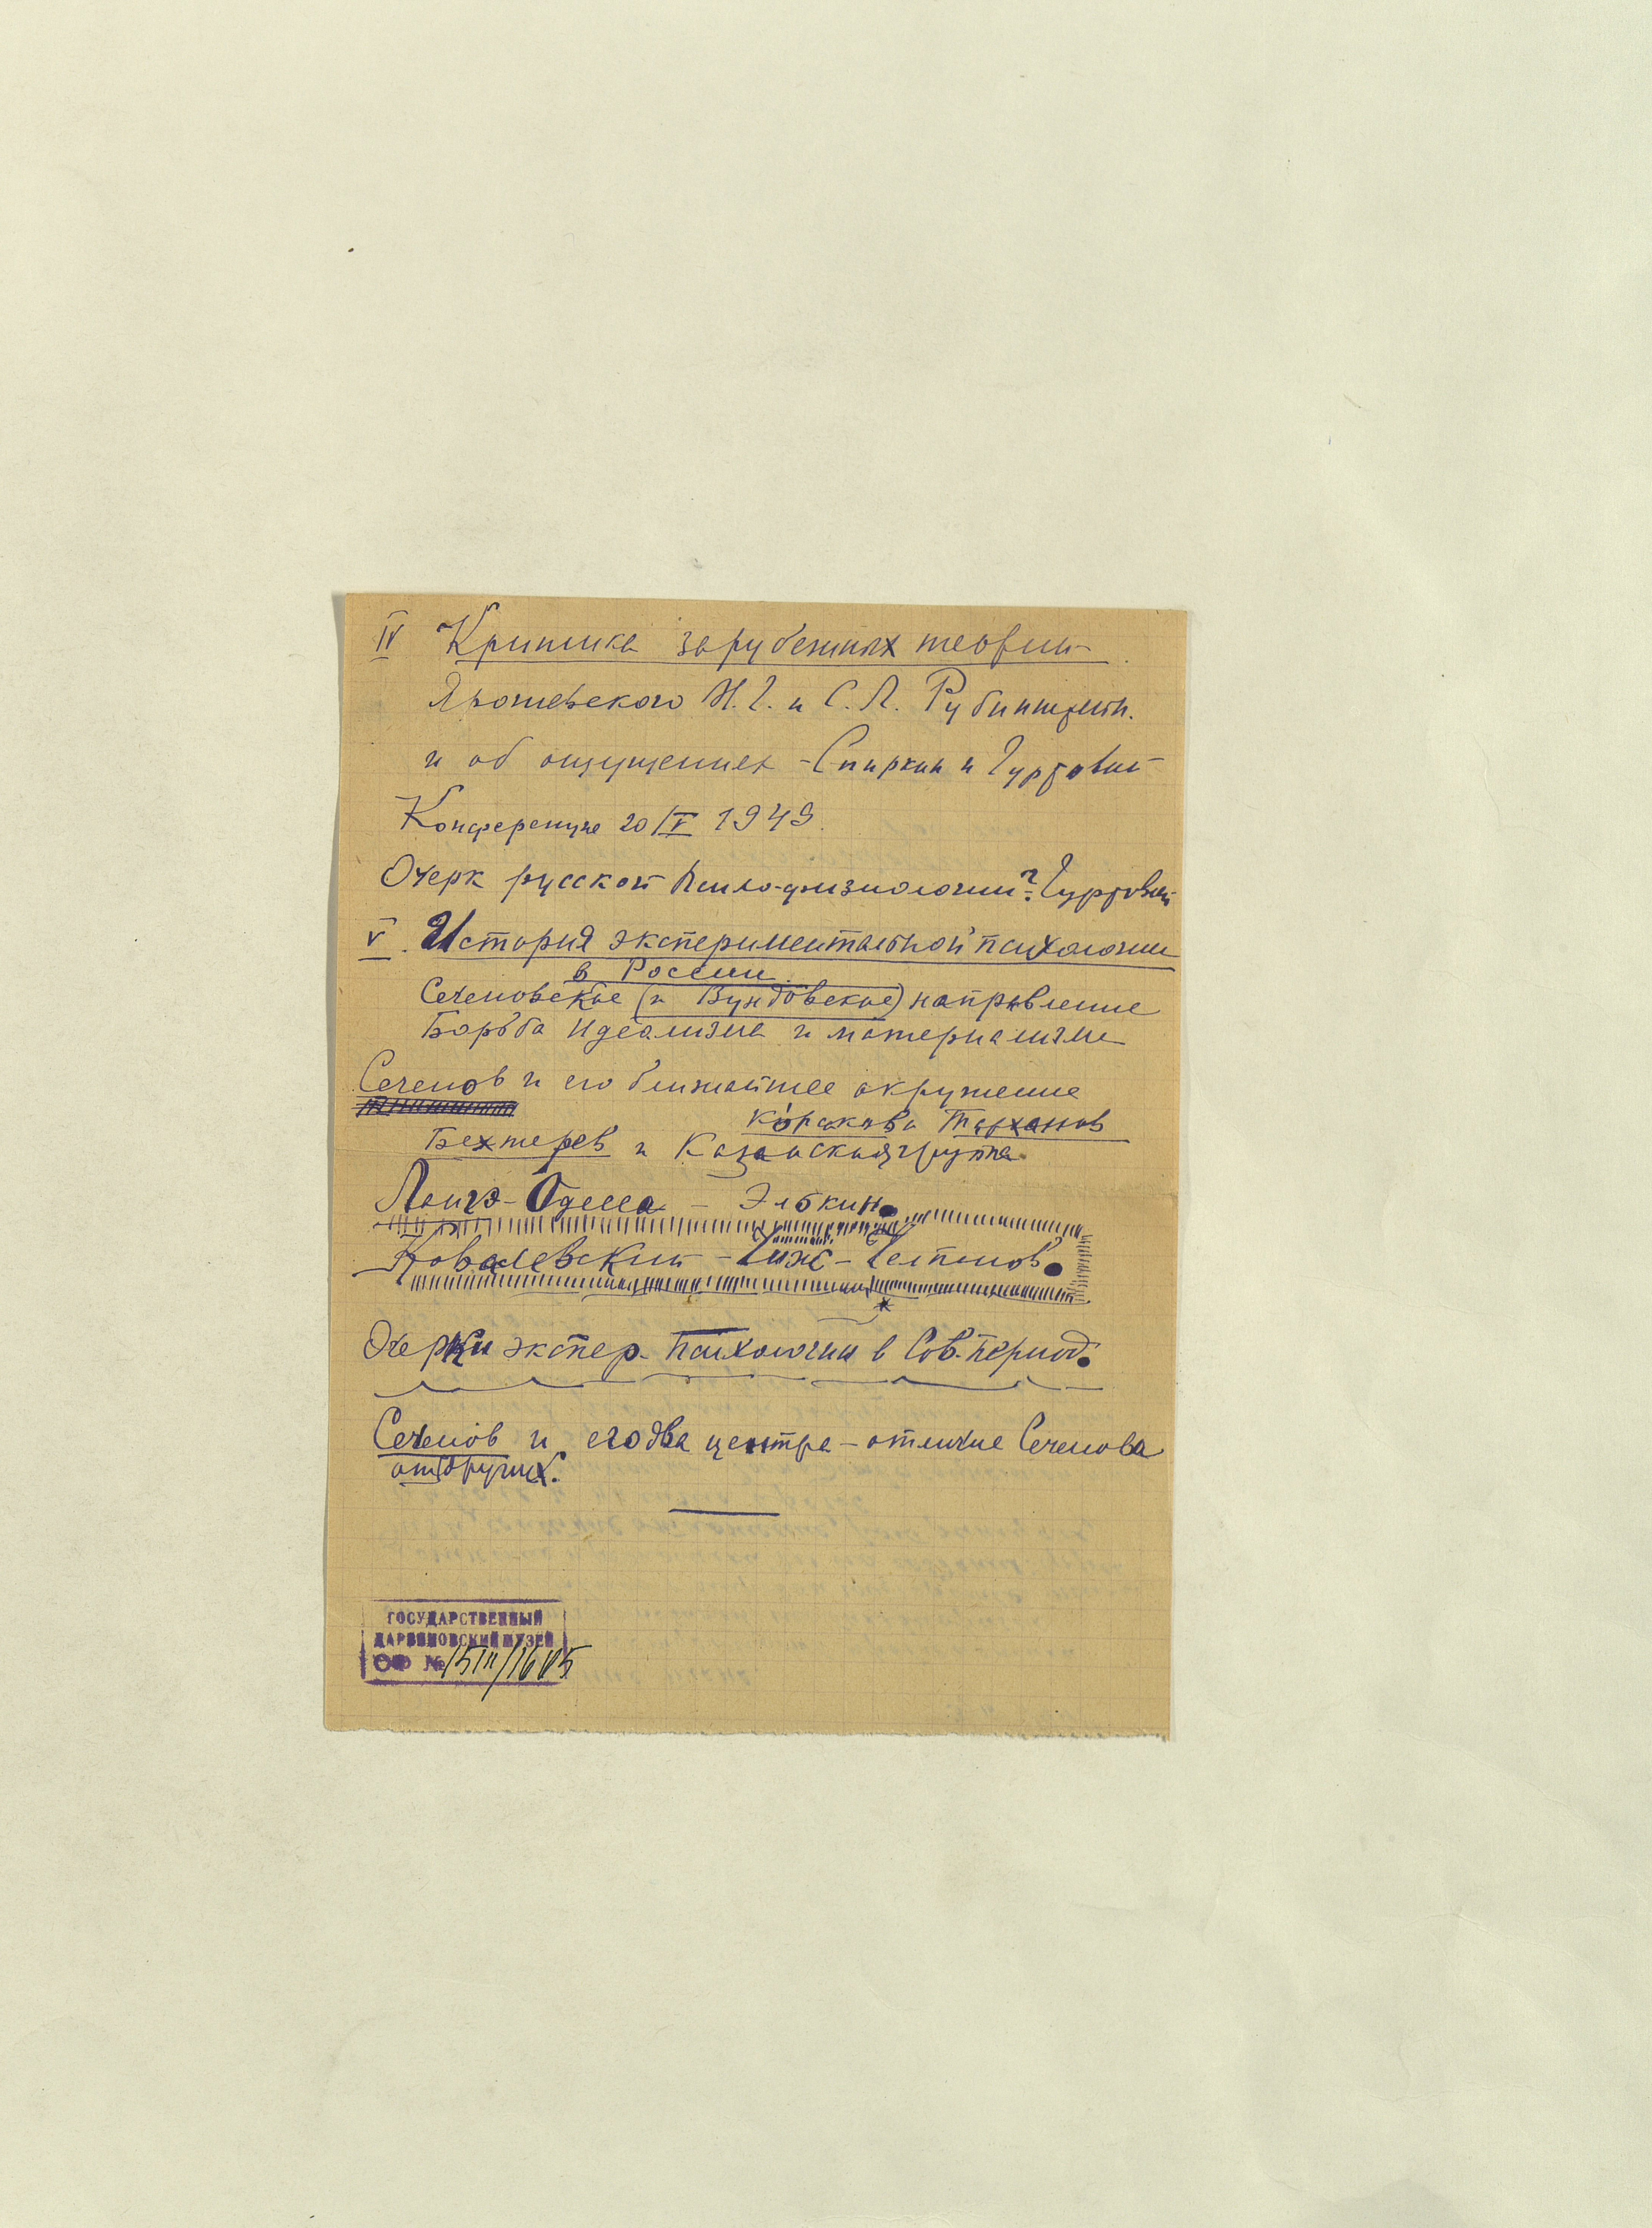 IV Критика зарубежных теорий
Ярошевского М. Г. и С. Л. Рубинштейн.
и об ощущениях - Спиркин и Гурговий
Конференция 20/V 1949.
Очерк русской психо-физиологии?
V. История экспериментальной психологии
в России.
Сеченовское (и Вундтовское) направление
Борьба идеализма и материализма
Сеченов и его ближайшее окружение
Тарханов
Бехтерев и Казанская группа
Ланге - Одесса - Элькин.
Ковалевский - Чиж - Челпанов.
Очерки экспер. психологии в Сов. период.
Сеченов и его два центра - отличие Сеченова
от других.
ГОСУДАРСТВЕННЫЙ
ДАРВИНОВСКИЙ МУЗЕЙ
ОФ №